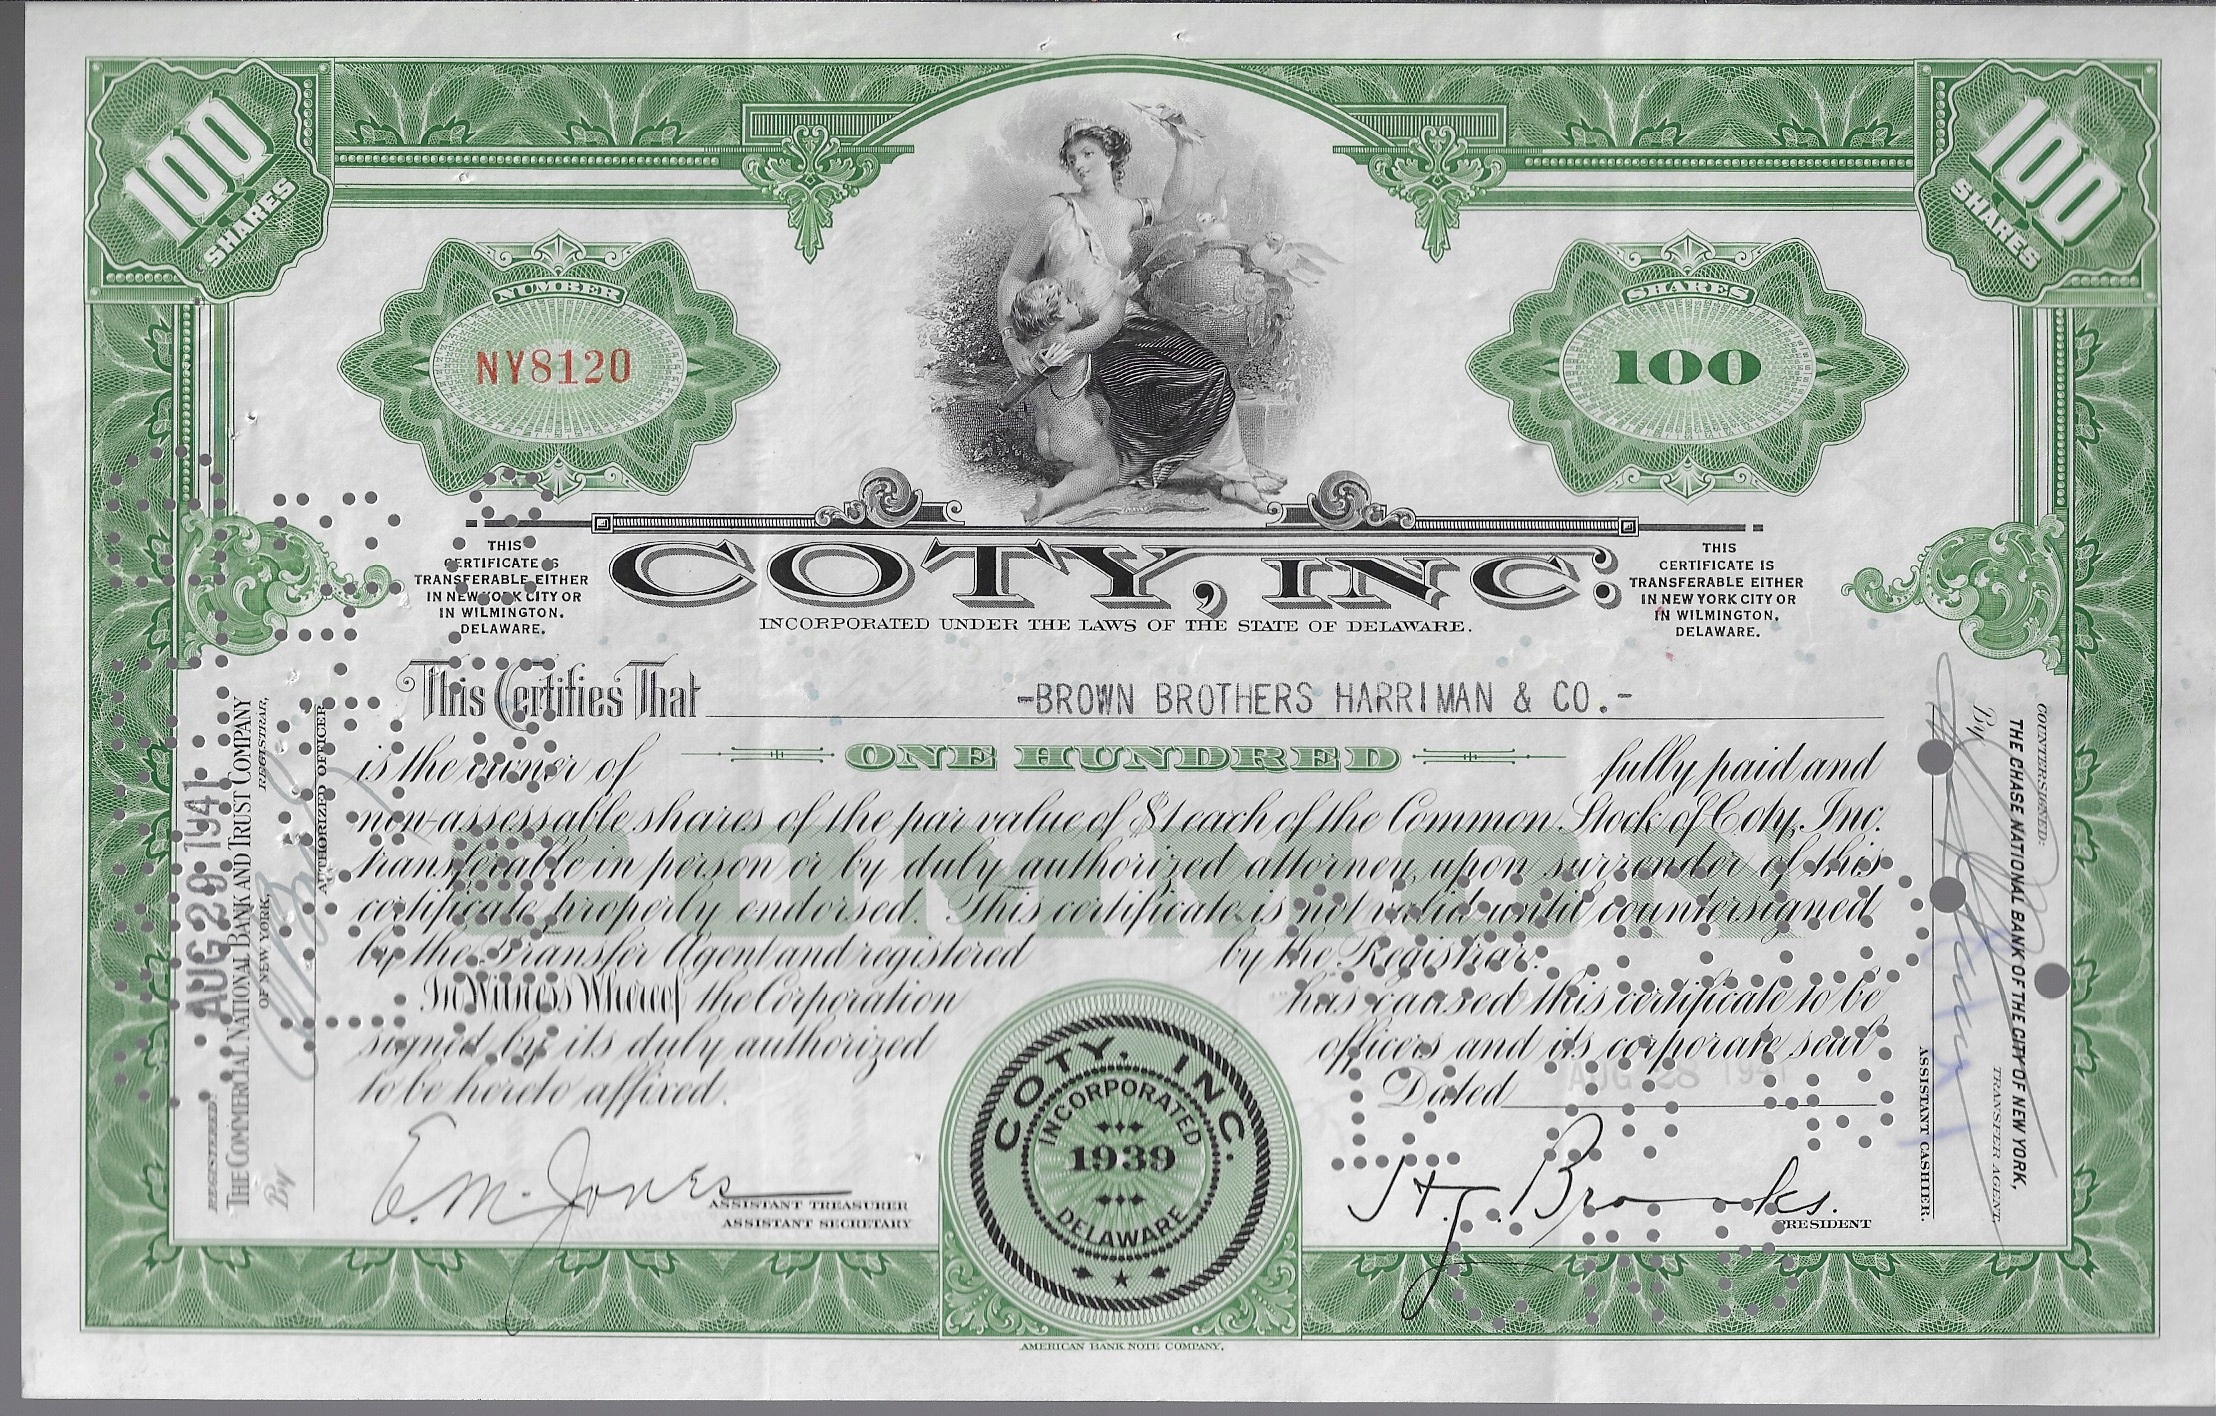 100
SHARES
100
SHARES
NUMBER
NY8120
SHARES
100
COTY, INC.
INCORPORATED UNDER THE LAWS OF THE STATE OF DELAWARE.
THIS
CERTIFICATE IS
TRANSFERABLE EITHER
IN NEW YORK CITY OR
IN WILMINGTON,
DELAWARE.
THIS
CERTIFICATE IS
TRANSFERABLE EITHER
IN NEW YORK CITY OR
IN WILMINGTON,
DELAWARE.
This Certifies That -BROWN BROTHERS HARRIMAN & CO.-
is the owner of ONE HUNDRED fully paid and
non-assessable shares of the par value of $1 each of the Common Stock of Coty, Inc.
transferable in person or by duly authorized attorney, upon surrender of this
certificate properly endorsed. This certificate is not valid until countersigned
by the Transfer Agent and registered by the Registrar.
COMMON
In Witness Whereof the Corporation has caused this certificate to be
signed by its duly authorized officers and its corporate seal
to be hereto affixed.
Dated AUG 28 1941
E. M. Jones
ASSISTANT TREASURER
ASSISTANT SECRETARY
COTY, INC.
INCORPORATED
1939
DELAWARE
H. J. Brooks.
PRESIDENT
AUG 29 1941
REGISTERED:
THE COMMERCIAL NATIONAL BANK AND TRUST COMPANY
OF NEW YORK, REGISTRAR,
By
AUTHORIZED OFFICER
COUNTERSIGNED:
THE CHASE NATIONAL BANK OF THE CITY OF NEW YORK,
TRANSFER AGENT.
By
ASSISTANT CASHIER.
AMERICAN BANK NOTE COMPANY.